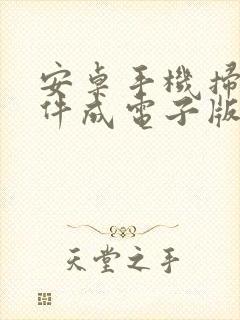 安桌手機掃
件成電子版
天堂之手